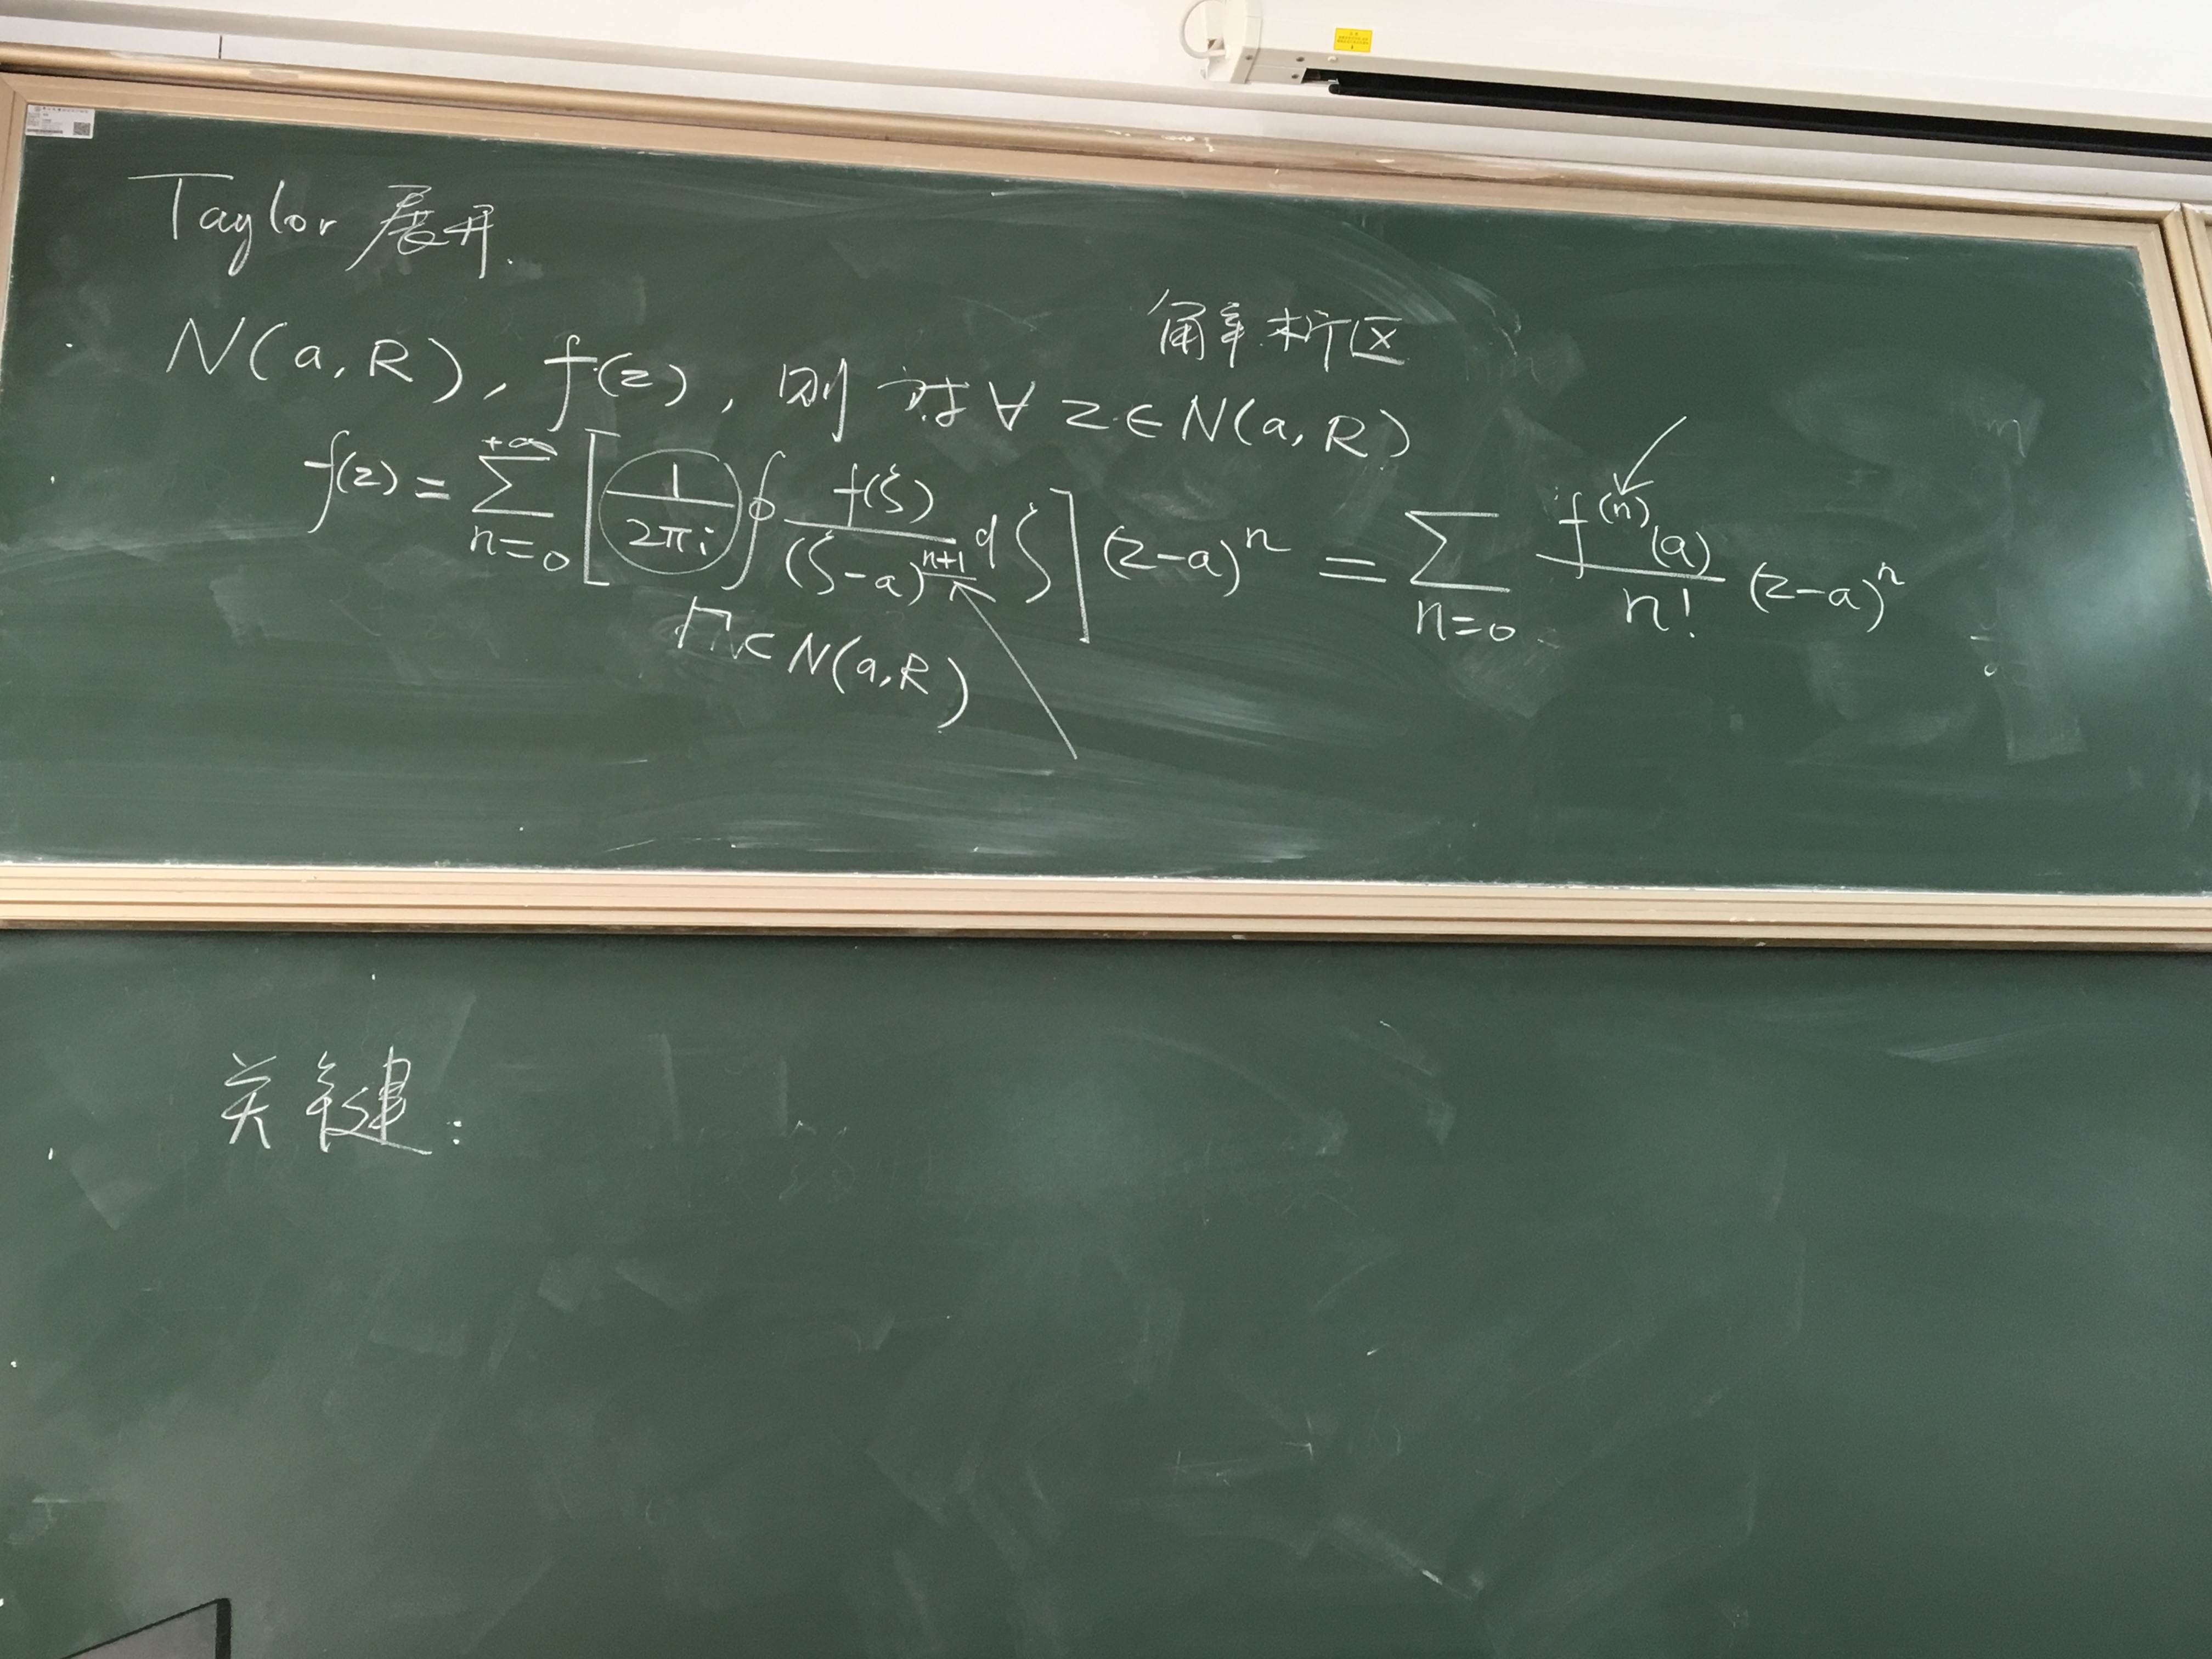 Taylor 展开.
解析区
N(a, R), f(z), 则 对 ∀ z ∈ N(a, R)
f(z) = \sum_{n=0}^{+∞} [ \frac{1}{2πi} \oint \frac{f(ζ)}{(ζ-a)^{n+1}} dζ ] (z-a)^n = \sum_{n=0} \frac{f^{(n)}(a)}{n!} (z-a)^n
⊂ N(a, R)
关键: